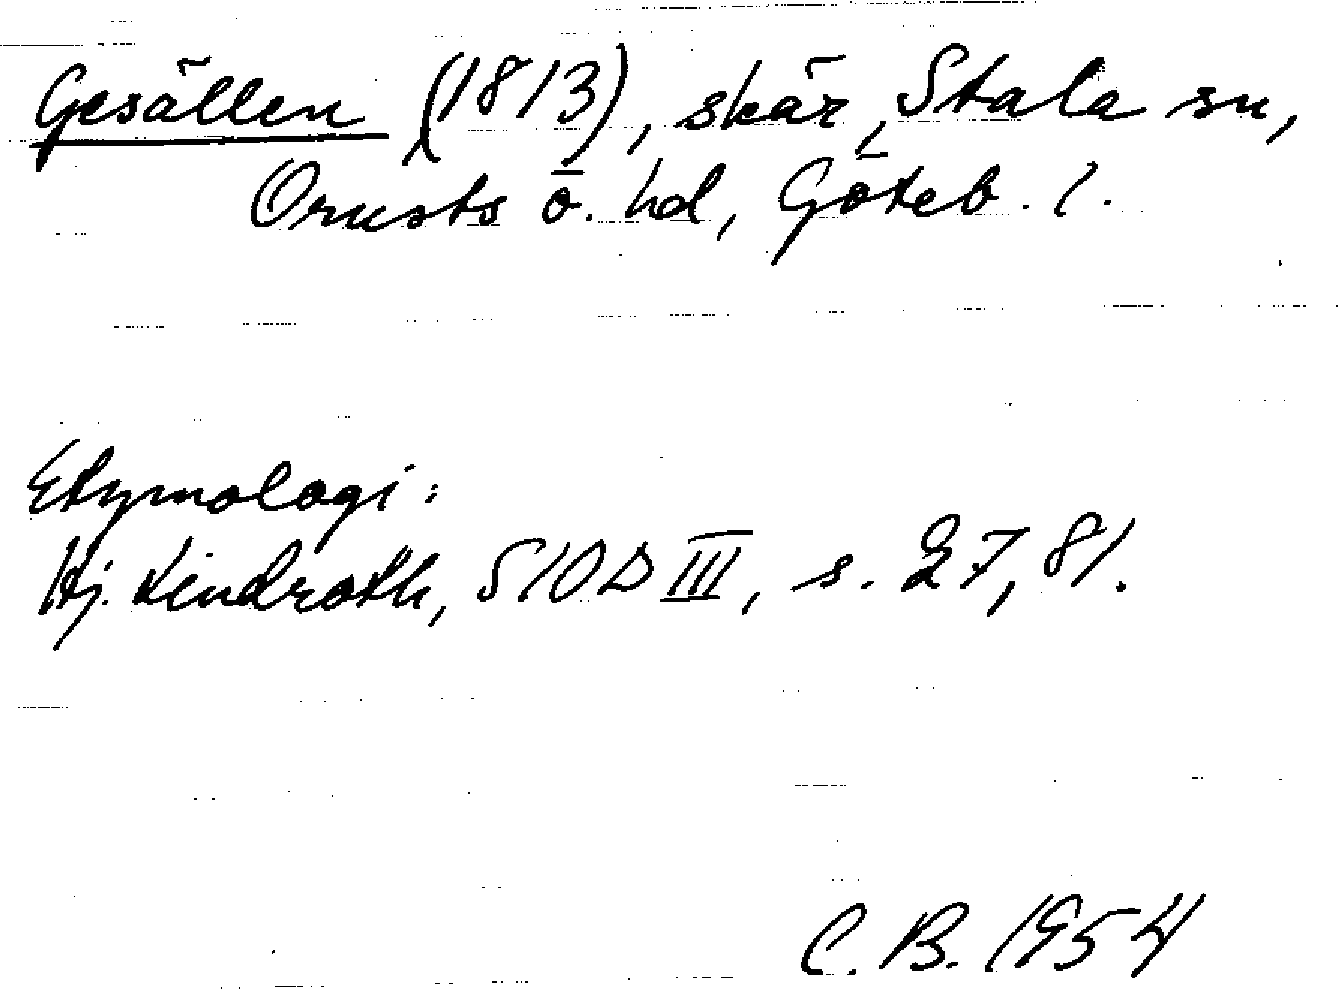 Gesällen (1813), skär, Stala sn,
Orusts ö. hd, Göteb. l.
Etymologi:
Hj. Lindroth, SIOD III, s. 27, 81.
C. B. 1954